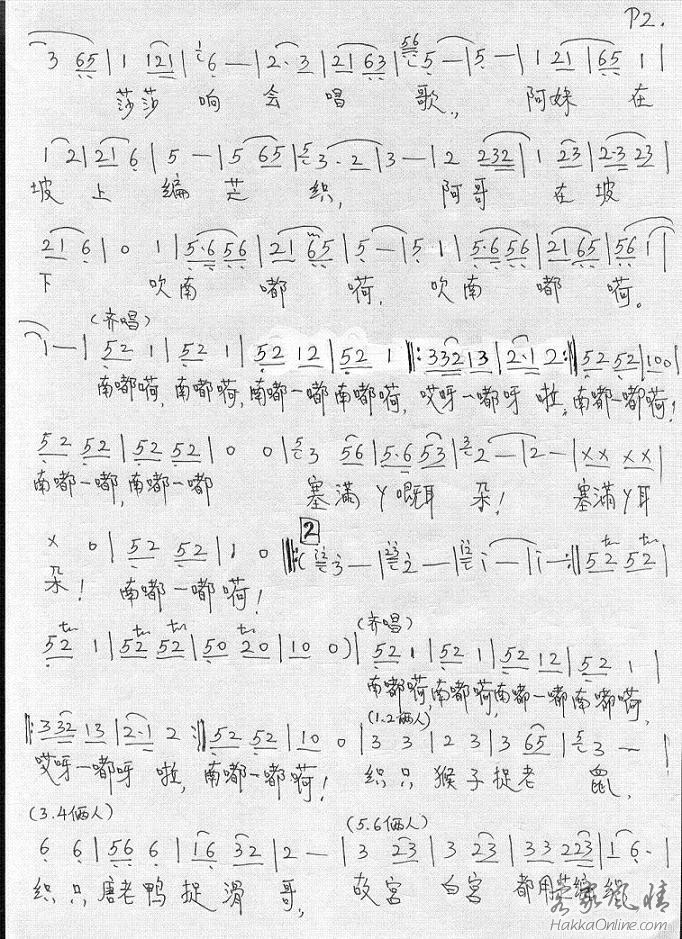 P2.
3 65 | 1 121 | 6 — | 2·3 | 21 63 | 5 — | 5 — | 1 21 | 65 1 |
莎莎 响 会 唱 歌, 阿妹 在
1 2 | 21 6 | 5 — | 5 65 | 3·2 | 3 — | 2 232 | 1 23 | 2·3 23 |
坡 上 编 芒 织, 阿哥 在 坡
21 6 | 0 1 | 5·6 56 | 21 65 | 5 — | 5 1 | 5·6 56 | 21 65 | 56 1 |
下 吹南 嘟 嗬, 吹南 嘟 嗬。
(齐唱)
1 — | 52 1 | 52 1 | 52 12 | 52 1 ‖: 332 13 | 2·1 2 :‖ 52 52 | 100 |
南嘟嗬, 南嘟嗬, 南嘟一嘟南嘟嗬, 哎呀一嘟呀 啦, 南嘟一嘟嗬!
52 52 | 52 52 | 0 0 | 3 56 | 5·6 53 | 2 — | 2 — | XX XX |
南嘟一嘟, 南嘟一嘟 塞满 丫 耳 朵! 塞满丫耳
X 0 | 52 52 | 1 0 ‖: ( 3 — | 2 — | 1 — | 1 — :‖ 52 52 |
2
朵! 南嘟一嘟嗬!
52 1 | 52 52 | 50 20 | 10 0 ) | 52 1 | 52 1 | 52 12 | 52 1 |
(齐唱)
南嘟嗬, 南嘟嗬, 南嘟一嘟南嘟嗬,
‖: 332 13 | 2·1 2 :‖ 52 52 | 10 0 | 3 3 | 2 3 | 3 65 | 3 — |
(1.2俩人)
哎呀一嘟呀 啦, 南嘟一嘟嗬! 织只 猴子捉老 鼠,
(3.4俩人) (5.6俩人)
6 6 | 56 6 | 16 32 | 2 — | 3 23 | 3 23 | 33 223 | 1 6· |
织只唐老鸭捉 滑 哥, 故宫 白宫 都用芒编织
客家风情
HakkaOnline.com